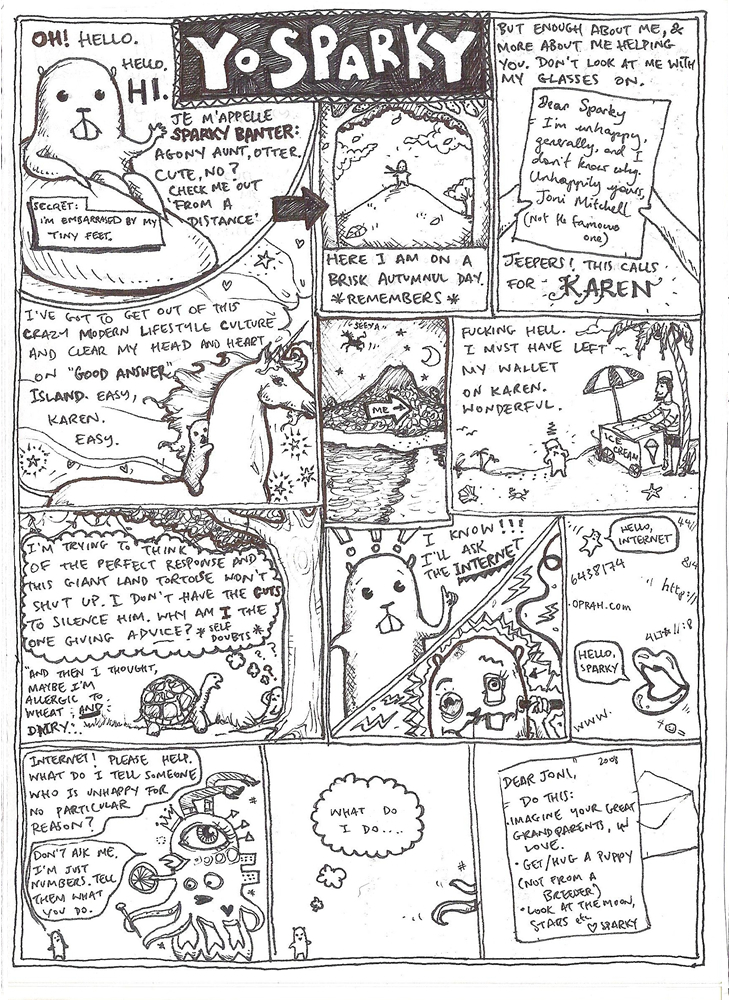 OH! HELLO.
HELLO.
HI.
YO SPARKY
JE M'APPELLE
SPARKY BANTER:
AGONY AUNT, OTTER.
CUTE, NO?
CHECK ME OUT
'FROM A
DISTANCE'
SECRET:
I'M EMBARRASED BY MY
TINY FEET.
HERE I AM ON A
BRISK AUTUMNUL DAY.
*REMEMBERS*
BUT ENOUGH ABOUT ME, &
MORE ABOUT ME HELPING
YOU. DON'T LOOK AT ME WITH
MY GLASSES ON.
Dear Sparky
I'm unhappy,
generally, and I
don't know why.
Unhappily yours,
Joni Mitchell
(Not the famous
one)
JEEPERS! THIS CALLS
FOR KAREN
I'VE GOT TO GET OUT OF THIS
CRAZY MODERN LIFESTYLE CULTURE
AND CLEAR MY HEAD AND HEART
ON "GOOD ANSWER"
ISLAND. EASY,
KAREN.
EASY.
SEEYA
ME
FUCKING HELL.
I MUST HAVE LEFT
MY WALLET
ON KAREN.
WONDERFUL.
ICE
CREAM
I'M TRYING TO THINK
OF THE PERFECT RESPONSE AND
THIS GIANT LAND TORTOISE WON'T
SHUT UP. I DON'T HAVE THE GUTS
TO SILENCE HIM. WHY AM I THE
ONE GIVING ADVICE? *SELF
DOUBTS*
? ?
"AND THEN I THOUGHT,
MAYBE I'M
ALLERGIC TO
WHEAT AND
DAIRY...
I KNOW!!!
I'LL ASK
THE INTERNET
HELLO,
INTERNET
6438174
http://
.OPRAH.COM
HELLO,
SPARKY
WWW.
INTERNET! PLEASE HELP.
WHAT DO I TELL SOMEONE
WHO IS UNHAPPY FOR
NO PARTICULAR
REASON?
DON'T ASK ME,
I'M JUST
NUMBERS. TELL
THEM WHAT
YOU DO.
WHAT DO
I DO....
2008
DEAR JONI,
DO THIS:
•IMAGINE YOUR GREAT
GRANDPARENTS, IN
LOVE.
•GET/HUG A PUPPY
(NOT FROM A
BREEDER)
•LOOK AT THE MOON,
STARS etc
♡ SPARKY